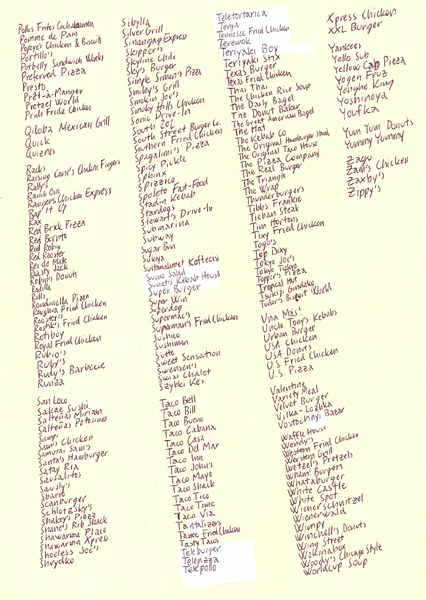 Pomme de Pain
Popeye's Chicken & Biscuits
Portillo's
Potbelly Sandwich Works
Preferred Pizza
Presto
Pret-a-Manger
Pretzel World
Pride Fride Chicken
Qdoba Mexican Grill
Quick
Quiznos
Racks
Raising Cane's Chicken Fingers
Rally's
Ranch One
Rangers Chicken Express
Rap it Up
Rax
Red Brick Pizza
Red Burrito
Red Robin
Red Rooster
Roasty Jack
Robin's Donuts
Rodilla
Rolls
Rooster's
Rostik's Fried Chicken
Rotiboy
Royal Fried Chicken
Rubio's
Ruby's
Rudy's Barbecue
Runza
San Loco
Sakae Sushi
Salteñas Miriam
Salteñas Potosinas
Sam's Chicken
Samurai Sam's
Santa's Hamburger
Satay Ria
Sausalitos
Sbarro
Scanburger
Schlotzsky's
Shakey's Pizza
Shane's Rib Shack
Shawarma Place
Shawarma Xpress
Shoeless Joe's
Sibylla
Silver Grill
Sinangag Express
Skipper's
Skyline Chili
Sky's Burger
Simple Simon's Pizza
Smiley's Grill
Smokin Joe's
Smoky Hills Chicken
Sonic Drive-In
South St. Burger Co.
Southern Fried Chicken
Spicy Pickle
Sphinx
Spizzico
Spoleto Fast-Food
Stadin Kebab
Stardogs
Stewart's Drive-In
Submarina
Subway
Sugar Bun
Sukiya
Sultanahmet Koftecisi
Sumo Salad
Super Burger
Super Win
Superdog
Supermac's
Superman's Fried Chicken
Sushino
Sushiman
Sweet Sensation
Swensen's
Swiss Chalet
Szybki Kes
Taco Bell
Taco Bill
Taco Bueno
Taco Cabana
Taco Casa
Taco Del Mar
Taco Inn
Taco John's
Taco Mayo
Taco Shack
Taco Tico
Taco Time
Taco Via
Tantalizers
Tastee Fried Chicken
Tasty Tacos
Teleburger
Telepizza
Telepollo
Teletortarica
Tenya
Tennessee Fried Chicken
Teremok
Teriyaki Boy
Teriyaki Stix
Texas Burger
Texas Fried Chicken
Thai Thai
The Chicken Rice Soup
The Daily Bagel
The Donut Baker
The Great American Bagel
The Hat
The Kebab Co
The Original Hamburger Stand
The Original Taco House
The Pizza Company
The Real Burger
The Triangle
The Wrap
Thunderburgers
Tibbs Frankie
Ticban Steak
Tim Hortons
Tixy Fried Chicken
Togo's
Top Dixy
Tokyo Joe's
Tokyo Tokyo
Topper's Pizza
Tropical Hut
Tsukiji Gindako
Tudor's Biscuit World
Una Mas!
Uncle Tony's Kebabs
Urban Burger
USA Chicken
USA Donuts
U.S. Fried Chicken
U.S. Pizza
Valentine
Variety Meal
Velvet Burger
Vilka-Lozhka
Vostochniyi Bazar
Waffle House
Wendy's
Western Fried Chicken
Werstern Grill
Wetzel's Pretzels
Wham! Burgers
Whataburger
White Castle
White Spot
Wienerschnitzel
Wienerwald
Wimpy
Winchell's Donuts
Wing Street
Woknabox
Woody's Chicago Style
Worldcup Soup
Xpress Chicken
XXL Burger
Yankees
Yello Sub
Yellow Cab Pizza
Yogen Fruz
Yonghe King
Yoshinoya
Youfka
Yum Yum Donuts
Yummy Yummy
Zagu
Zam's Chicken
Zaxby's
Zippy's